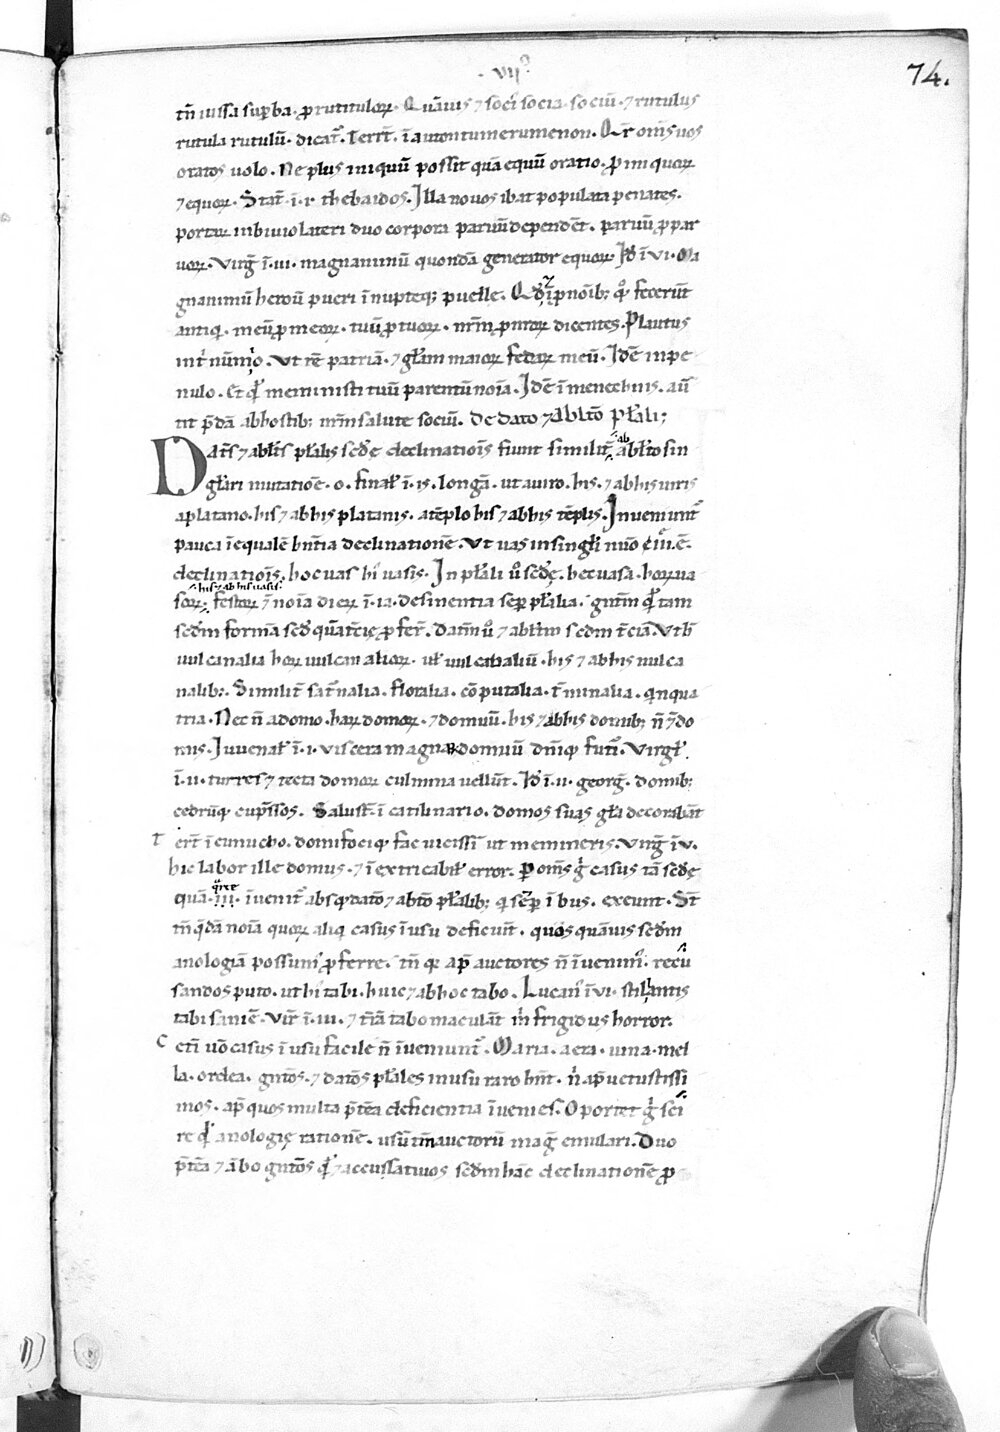 · vii ·
74.
tñ iussa supba · ꝓ rutuloꝝ · Quãuis ⁊ soci socia sociũ · ⁊ rutulus
rutula rutulũ · dicat̃ · Terr̃t · ĩ autontumerumenon · Qr̃ om̃s uos
oratos uolo · Ne plus iniquũ possit quã equũ oratio · ꝓ iniquoꝝ
⁊ equoꝝ · Stat̃ · ĩ · i · thebaidos · Illa nouos ibat populata penates ·
portaꝝ in biuio lateri duo corpora paruũ dependẽt · paruũ ꝓ par
uoꝝ · Virg̃ ĩ · iii · magnanimũ quondã generator equoꝝ · Id̃ ĩ vi · Ma
gnanimũ heroũ pueri ĩnupteq; puelle · Qd̃ ĩ pnoĩb; qͦ fecerũt
antiqi · meũ ꝓ meoꝝ · tuũ ꝓ tuoꝝ · nr̃m ꝓ nr̃oꝝ dicentes · Plautus
ĩ trinũmo · Vt rẽ patriã · ⁊ gl̃am maioꝝ fedaꝝ meũ · Idẽ in pe
nulo · Et qd̃ meministi tuũ parentũ noĩa · Idẽ ĩ menechinis · au
fert p̃dã ab hostib; nr̃m salute sociũ · De dato ⁊ ablt̃o pl̃ali;
Dat̃s ⁊ ablt̃s pl̃alis scd̃ę declinatiõis fiunt similit̃ ab ablt̃o sin
gl̃ari mutatiõe · o · final̃ ĩ · is · longã · ut a uiro · his · ⁊ ab his uiris
a platano · his ⁊ ab his platanis · a tẽplo his ⁊ ab his tẽplis · Inueniunt̃
pauca ĩequalẽ hñtia declinationẽ · Vt uas in singl̃i nũo t̃tię ·
declinatiõis · hoc uas hi uasis · In pl̃ali ů scd̃ę · hec uasa · hoꝝ ua
soꝝ · his ⁊ ab his uasis · festoꝝ ⁊ noĩa dieꝝ ĩ · ia · desinentia semp pl̃alia · gñtĩm qd̃ tam
scd̃m formã scd̃ę quã t̃cię ꝓfer̃t · Datĩm ů ⁊ ablt̃ĩm scd̃m t̃ciã · Vt h̃
uulcanalia hoꝝ uulcanalioꝝ · ul̃ uulcanaliũ · his ⁊ ab his uulca
nalib; · Similit̃ sat̃nalia · floralia · cõputalia · t̃minalia · qinqua
tria · Nec ñ a domo · haꝝ domoꝝ · ⁊ domuũ · his ⁊ ab his domib; ñ ⁊ do
mis · Iuuenal̃ ĩ · i · viscera magnaꝝ domuũ dñiq; fut̃i · Virgil̃ ·
ĩ · ii · turres ⁊ tecta domoꝝ culmina uellũt · Id̃ ĩ · ii · georg̃ · domib;
cedrũq; cup̃ssos · Salust̃ · ĩ catilinario · domos suas gl̃a decorabãt
Tert̃ ĩ eunucho · domi focíq; fac uicissĩ ut memineris · Virg̃ ĩ v ·
hic labor ille domus · ⁊ ĩextricabil̃ error · ꝑ om̃s g̃ casus tã scd̃ę
quã · iii · ĩuenit̃ absq; dato ⁊ ablt̃o pl̃alib; qi semp ĩ bus · exeunt · St̃
tñ qdã noĩa quoꝝ aliqi casus ĩ usu deficiunt · quos quãuis scd̃m
anologiã possum ꝓferre · tñ qr ap̃ auctores ñ ĩuenim̃ · recu
sandos puto · ut hi tabi · huic ⁊ ab hoc tabo · Lucan̾ ĩ vi · stillantis
tabi saniẽ · Vir̃ ĩ · iii · ⁊ t̃rã tabo maculãt m̃ frigidus horror ·
Cet̃i uo casus ĩ usu facile ñ ĩueniunt̃ · Maria · aera · uina · mel
la · ordea · gñtos · ⁊ datos pl̃ales in usu raro hñt · ñ ap̃ uetustissi
mos · ap̃ quos multa p̃tea deficientia ĩuenies · Oportet g̃ sci
re qd̃ anologię rationẽ · usũ tñ auctorũ mag̃ emulari · Duo
p̃tea ⁊ ãbo gñtos qd̃ ⁊ accusatiuos scd̃m hãc declinationẽ ꝓ